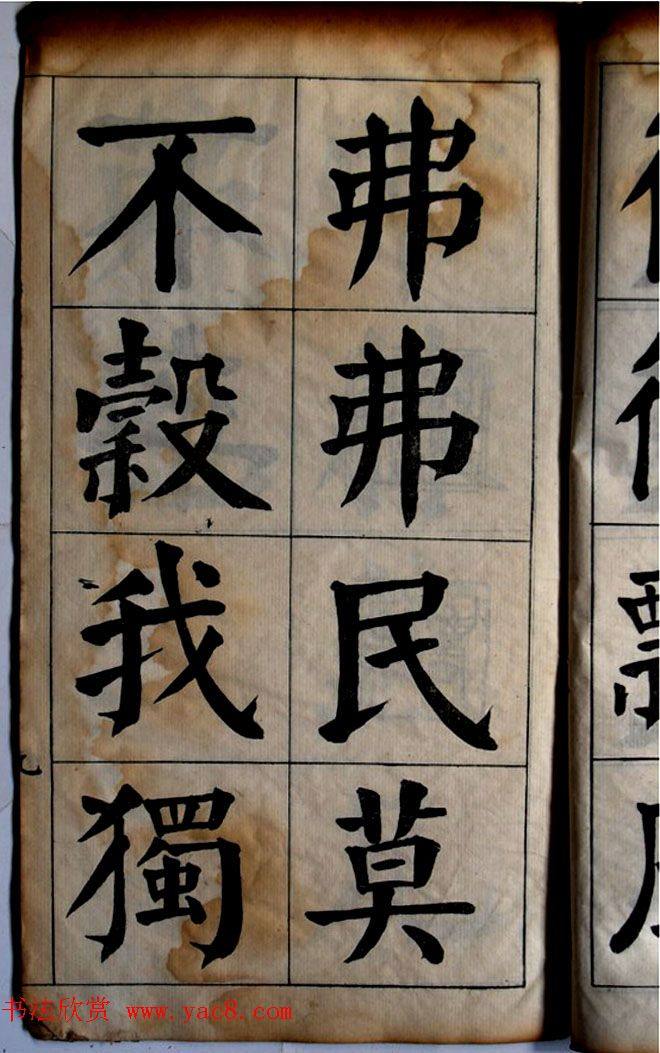 弗弗民莫
不穀我獨
九
书法欣赏 www.yac8.com